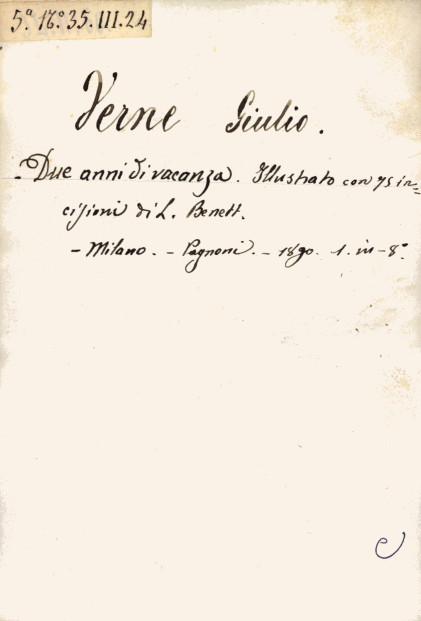 5ª 16º 35. III. 24
Verne Giulio.
- Due anni di vacanza. Illustrato con 75 in=
cisioni di L. Benett.
- Milano. - Pagnoni. - 1890. 1. in - 8º.